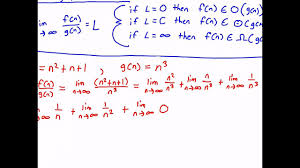 lim n→∞ f(n)/g(n) = L { if L=0 then f(n) ∈ O(g(n)
if 0<L<∞ then f(n) ∈ Θ(g(n)
if L=∞ then f(n) ∈ Ω(g(n)
= n²+n+1 , g(n) = n³
f(n)/g(n) = lim n→∞ (n²+n+1)/n³ = lim n→∞ n²/n³ + lim n→∞ n/n³ + lim n→∞ 1/n³
lim n→∞ 1/n + lim n→∞ 1/n² + lim n→∞ 0